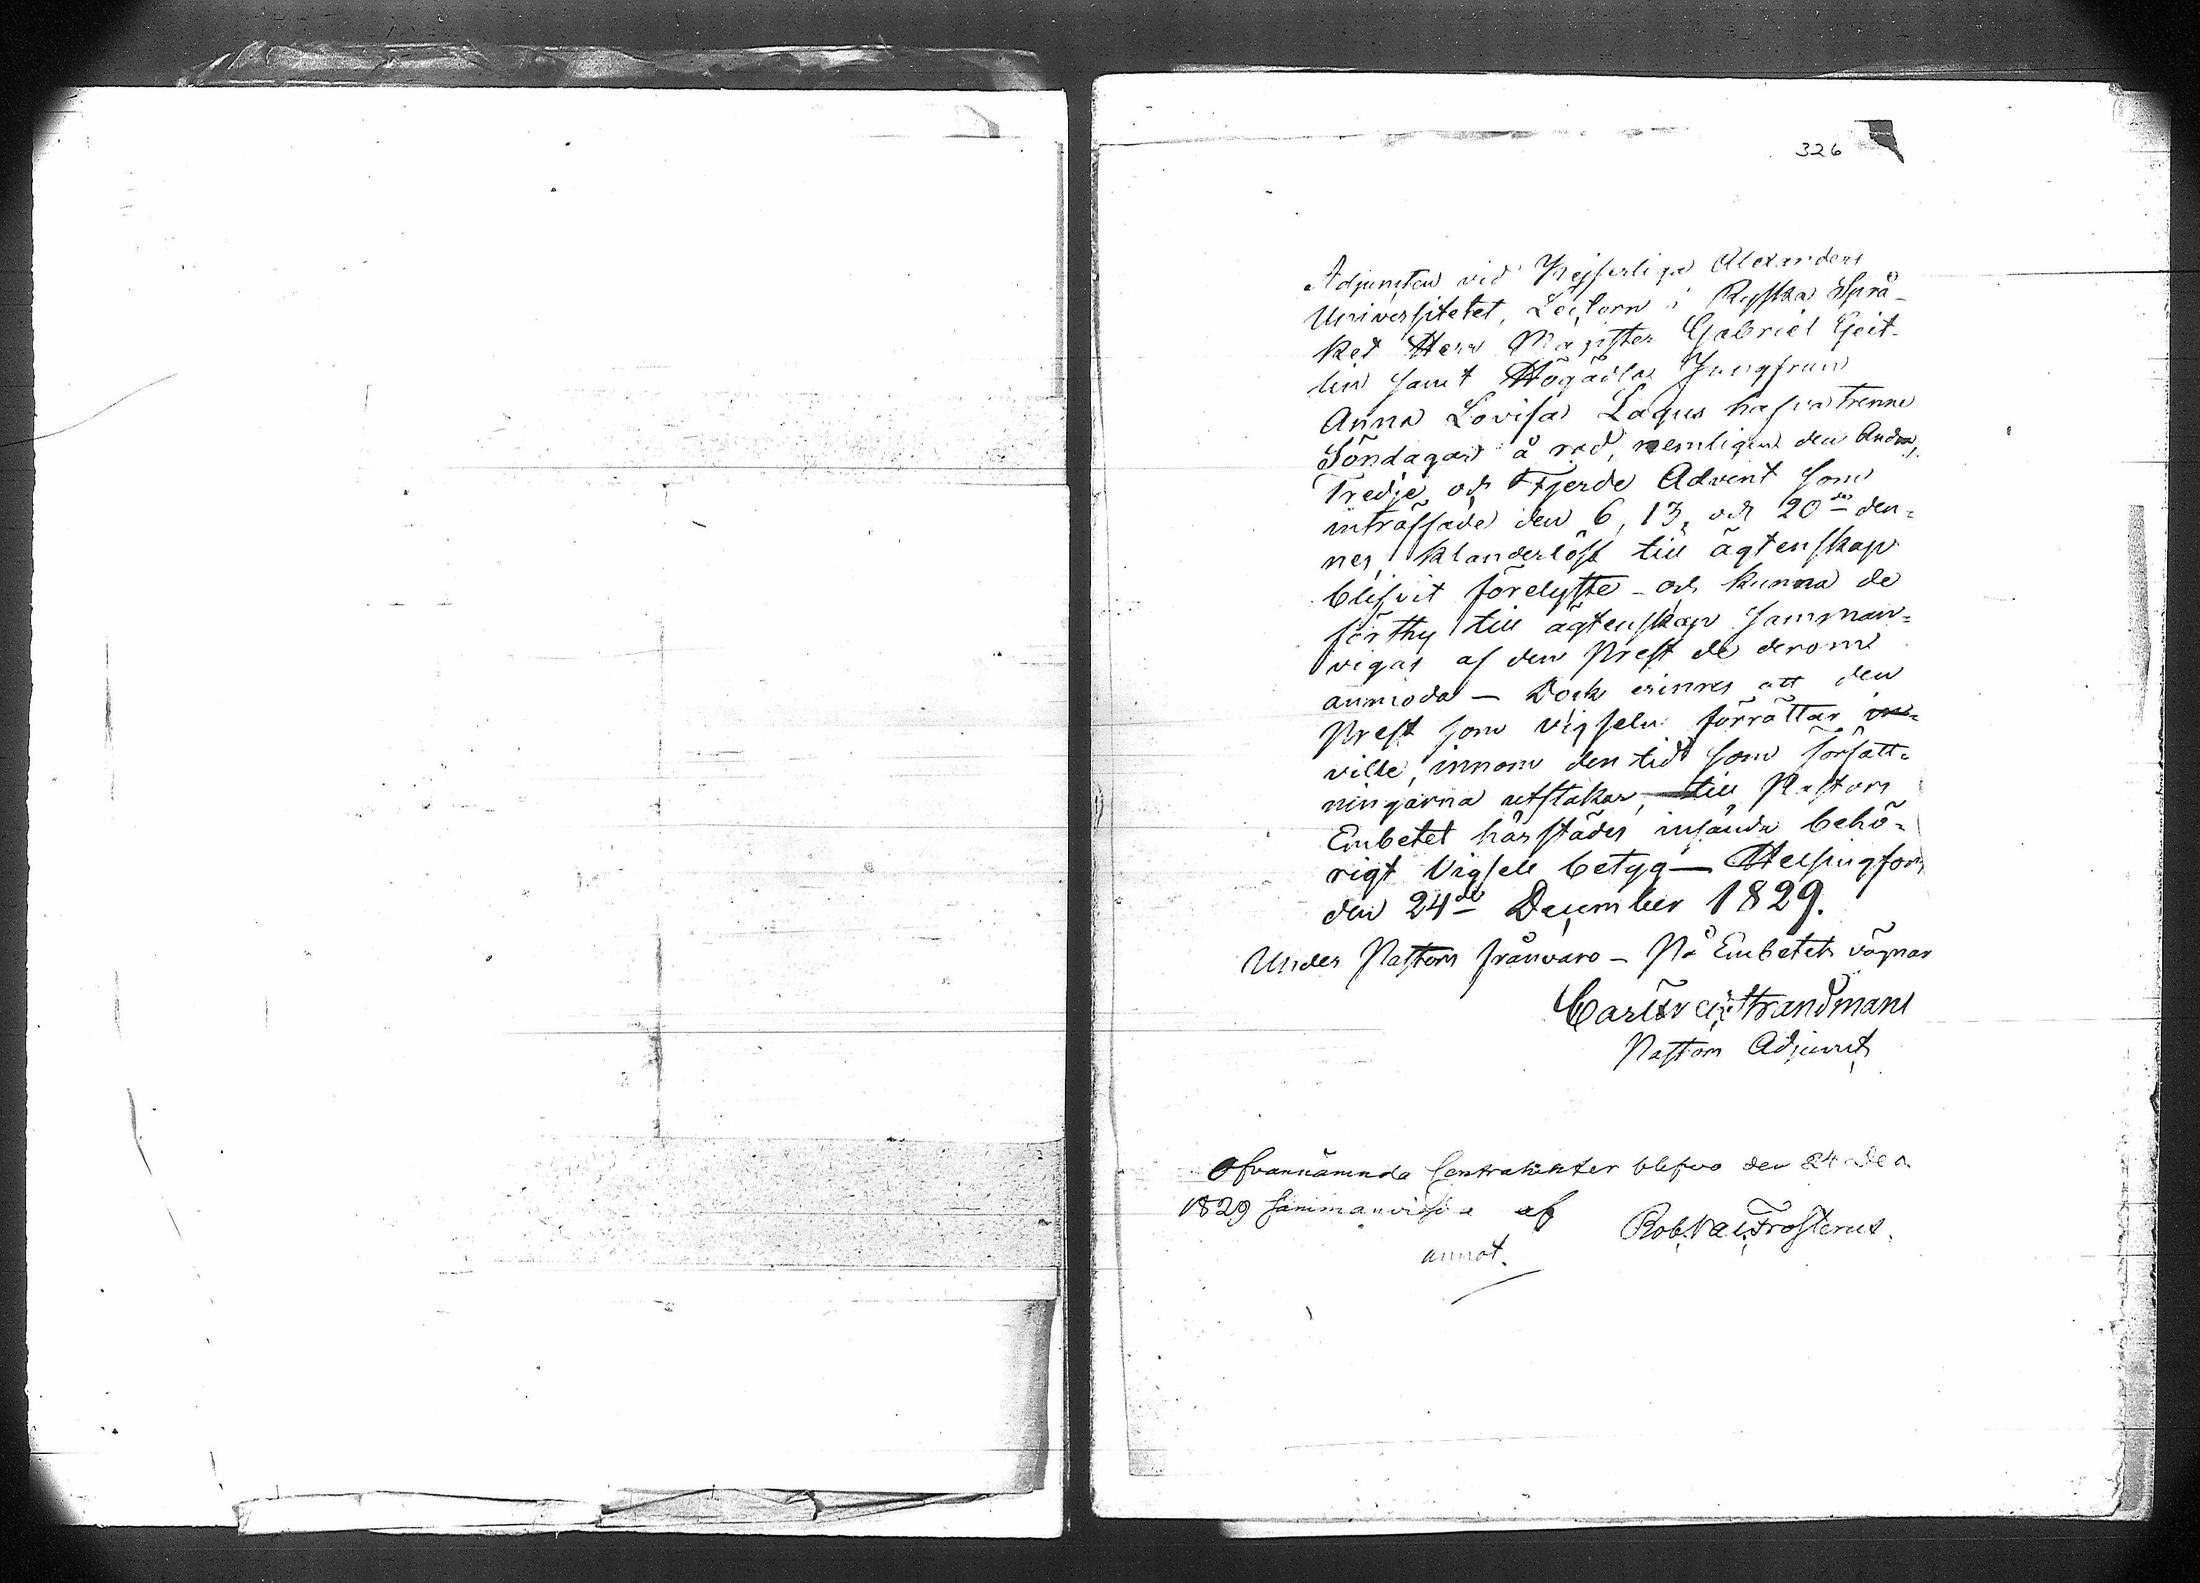 326
Adjuncten vid Kejserliga Alexanders
Universitetet, Lectorn i Ryska Språ-
ket Herr Magister Gabriel Geit-
lin samt Högädla Jungfrun
Anna Lovisa Lagus hafva trenne
Söndagar å rad, nemligen den Andra,
Tredje och Fjerde Advent som
inträffade den 6, 13, och 20de den-
nes, klanderlöst till ägtenskap
blifvit förelyste - och kunna de
förthy till ägtenskap samman-
vigas af den Prest de derom
anmoda - Dock erinres att den
Prest som vigseln förrättar
ville, innom den tid som författ-
ningarna utstakar, till Pastors
Embetet härstädes insända behö-
rigt Vigsele betyg - Helsingfors
den 24de December 1829.
Under Pastors frånvaro - På Embetets vägnar
Strandman
Pastors Adjunct
Ofvannämnda Contrahenter blefvo den 24 Dec.
1829 sammanvigde af
Rob. Val. Frosterus.
annot.